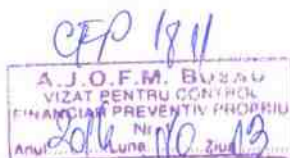 CFP 1811
A.J.O.F.M. BUZAU
VIZAT PENTRU CONTROL
FINANCIAR PREVENTIV PROPRIU
Nr.
Anul 2014 Luna 10 Ziua 13